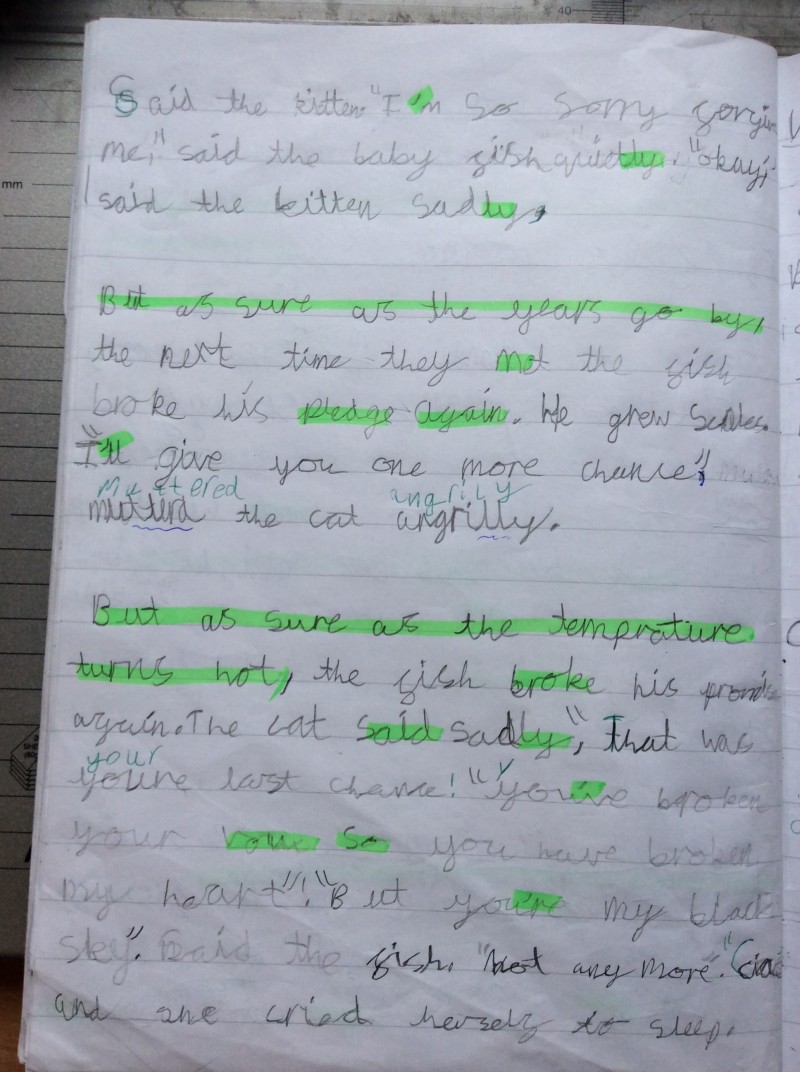 Said the kitten. "I'm So Sorry forgive
me," said the baby fish "quietly. "okay,"
said the kitten Sadly,
But as sure as the years go by,
the next time they met the fish
broke his pledge again. He grew Scales.
"I'll give you one more chance",
Muttered angrily
mutterd the cat angrilly.
But as sure as the temprature
turns hot, the fish broke his promise
again. The cat said sadly", That was
your
youre last chance! "You've broken
your vow So you have broken
my heart"! "But you're my black
sky". Said the fish. "Not any more."
and she cried herself to sleep.
mm
40